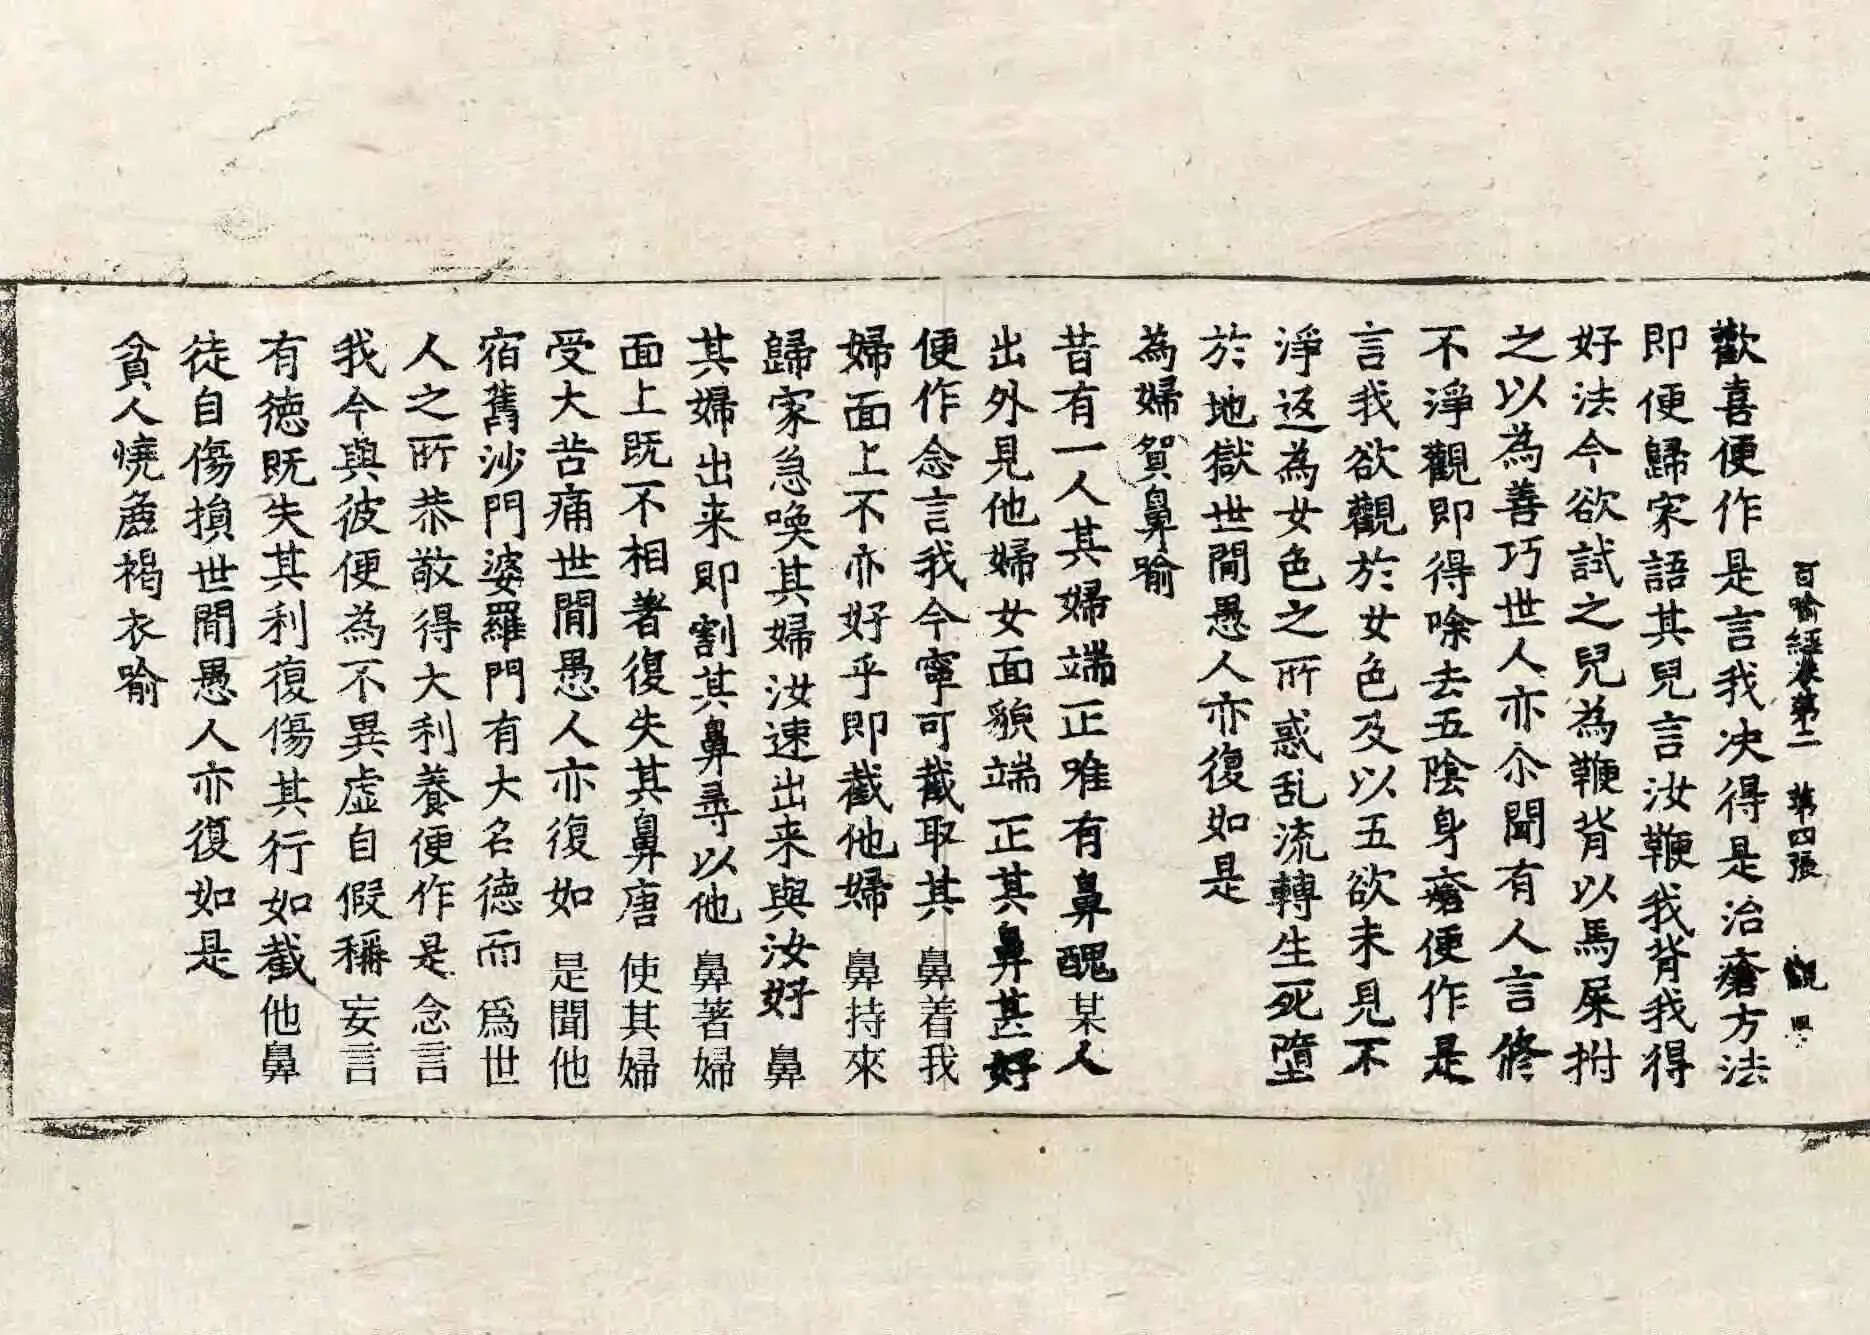 百喻經卷第二 第四張
歡喜便作是言我决得是治瘡方法
即便歸家語其兒言汝鞭我背我得
好法今欲試之兒為鞭背以馬屎拊
之以為善巧世人亦尒聞有人言修
不淨觀即得除去五陰身瘡便作是
言我欲觀於女色及以五欲未見不
淨返為女色之所惑乱流轉生死墮
於地獄世間愚人亦復如是
為婦貿鼻喻
昔有一人其婦端正唯有鼻醜某人
出外見他婦女面貌端正其鼻甚好
便作念言我今寧可截取其鼻着我
婦面上不亦好乎即截他婦鼻持來
歸家急喚其婦汝速出来與汝好鼻
其婦出来即割其鼻尋以他鼻著婦
面上既不相著復失其鼻唐使其婦
受大苦痛世間愚人亦復如是聞他
宿舊沙門婆羅門有大名德而爲世
人之所恭敬得大利養便作是念言
我今與彼便為不異虛自假稱妄言
有德既失其利復傷其行如截他鼻
徒自傷損世間愚人亦復如是
貧人燒麁褐衣喻